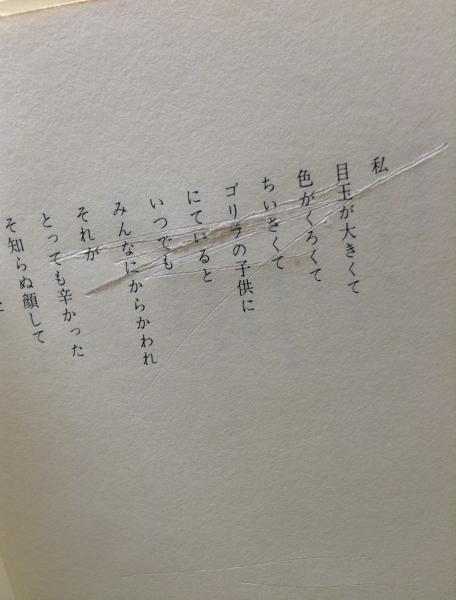 私
目玉が大きくて
色がくろくて
ちいさくて
ゴリラの子供に
にていると
いつでも
みんなにからかわれ
それが
とっても辛かった
そ知らぬ顔して